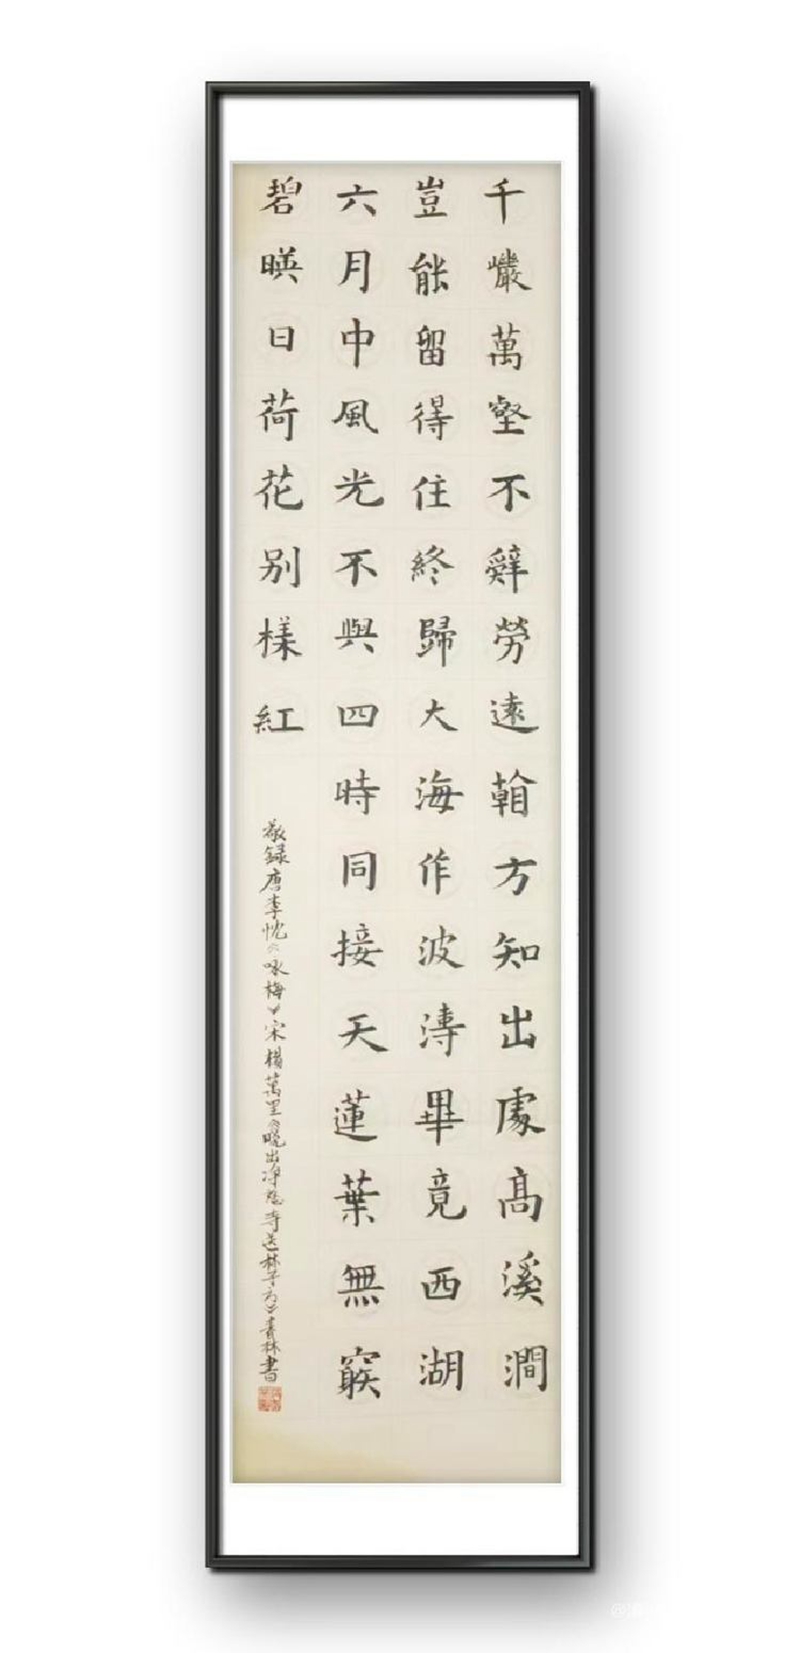 千巖萬壑不辭勞遠看方知出處高溪澗
豈能留得住終歸大海作波濤畢竟西湖
六月中風光不與四時同接天蓮葉無窮
碧暎日荷花别樣紅
敬録唐李忱《咏梅》宋楊萬里《曉出淨慈寺送林子方》青林書